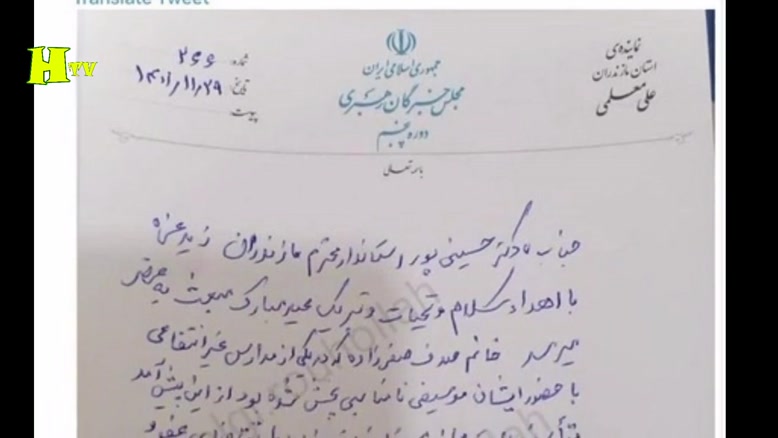 Translate Tweet
HTV
جمهوری اسلامی ایران
مجلس خبرگان رهبری
دوره پنجم
نماینده‌ی
استان مازندران
علی معلمی
شماره: ۲۶۶
تاریخ: ۱۴۰۱/۱۱/۲۹
پیوست:
باسمه تعالی
جناب دکتر حسینی پور استاندار محترم مازندران زید عزه
با اهداء سلام و تحیات و تبریک عید مبارک مبعث به عرض
میرسد خانم صدف صفرزاده که در یکی از مدارس غیر انتفاعی
با حضور ایشان موسیقی نامناسبی پخش شده بود از این پیش آمد